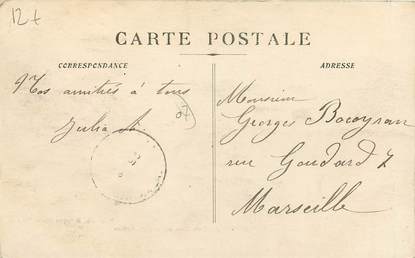 12t
CARTE POSTALE
CORRESPONDANCE
Mes amitiés à tous
Julia A.
ADRESSE
Monsieur
Georges
rue Goudard 7
Marseille